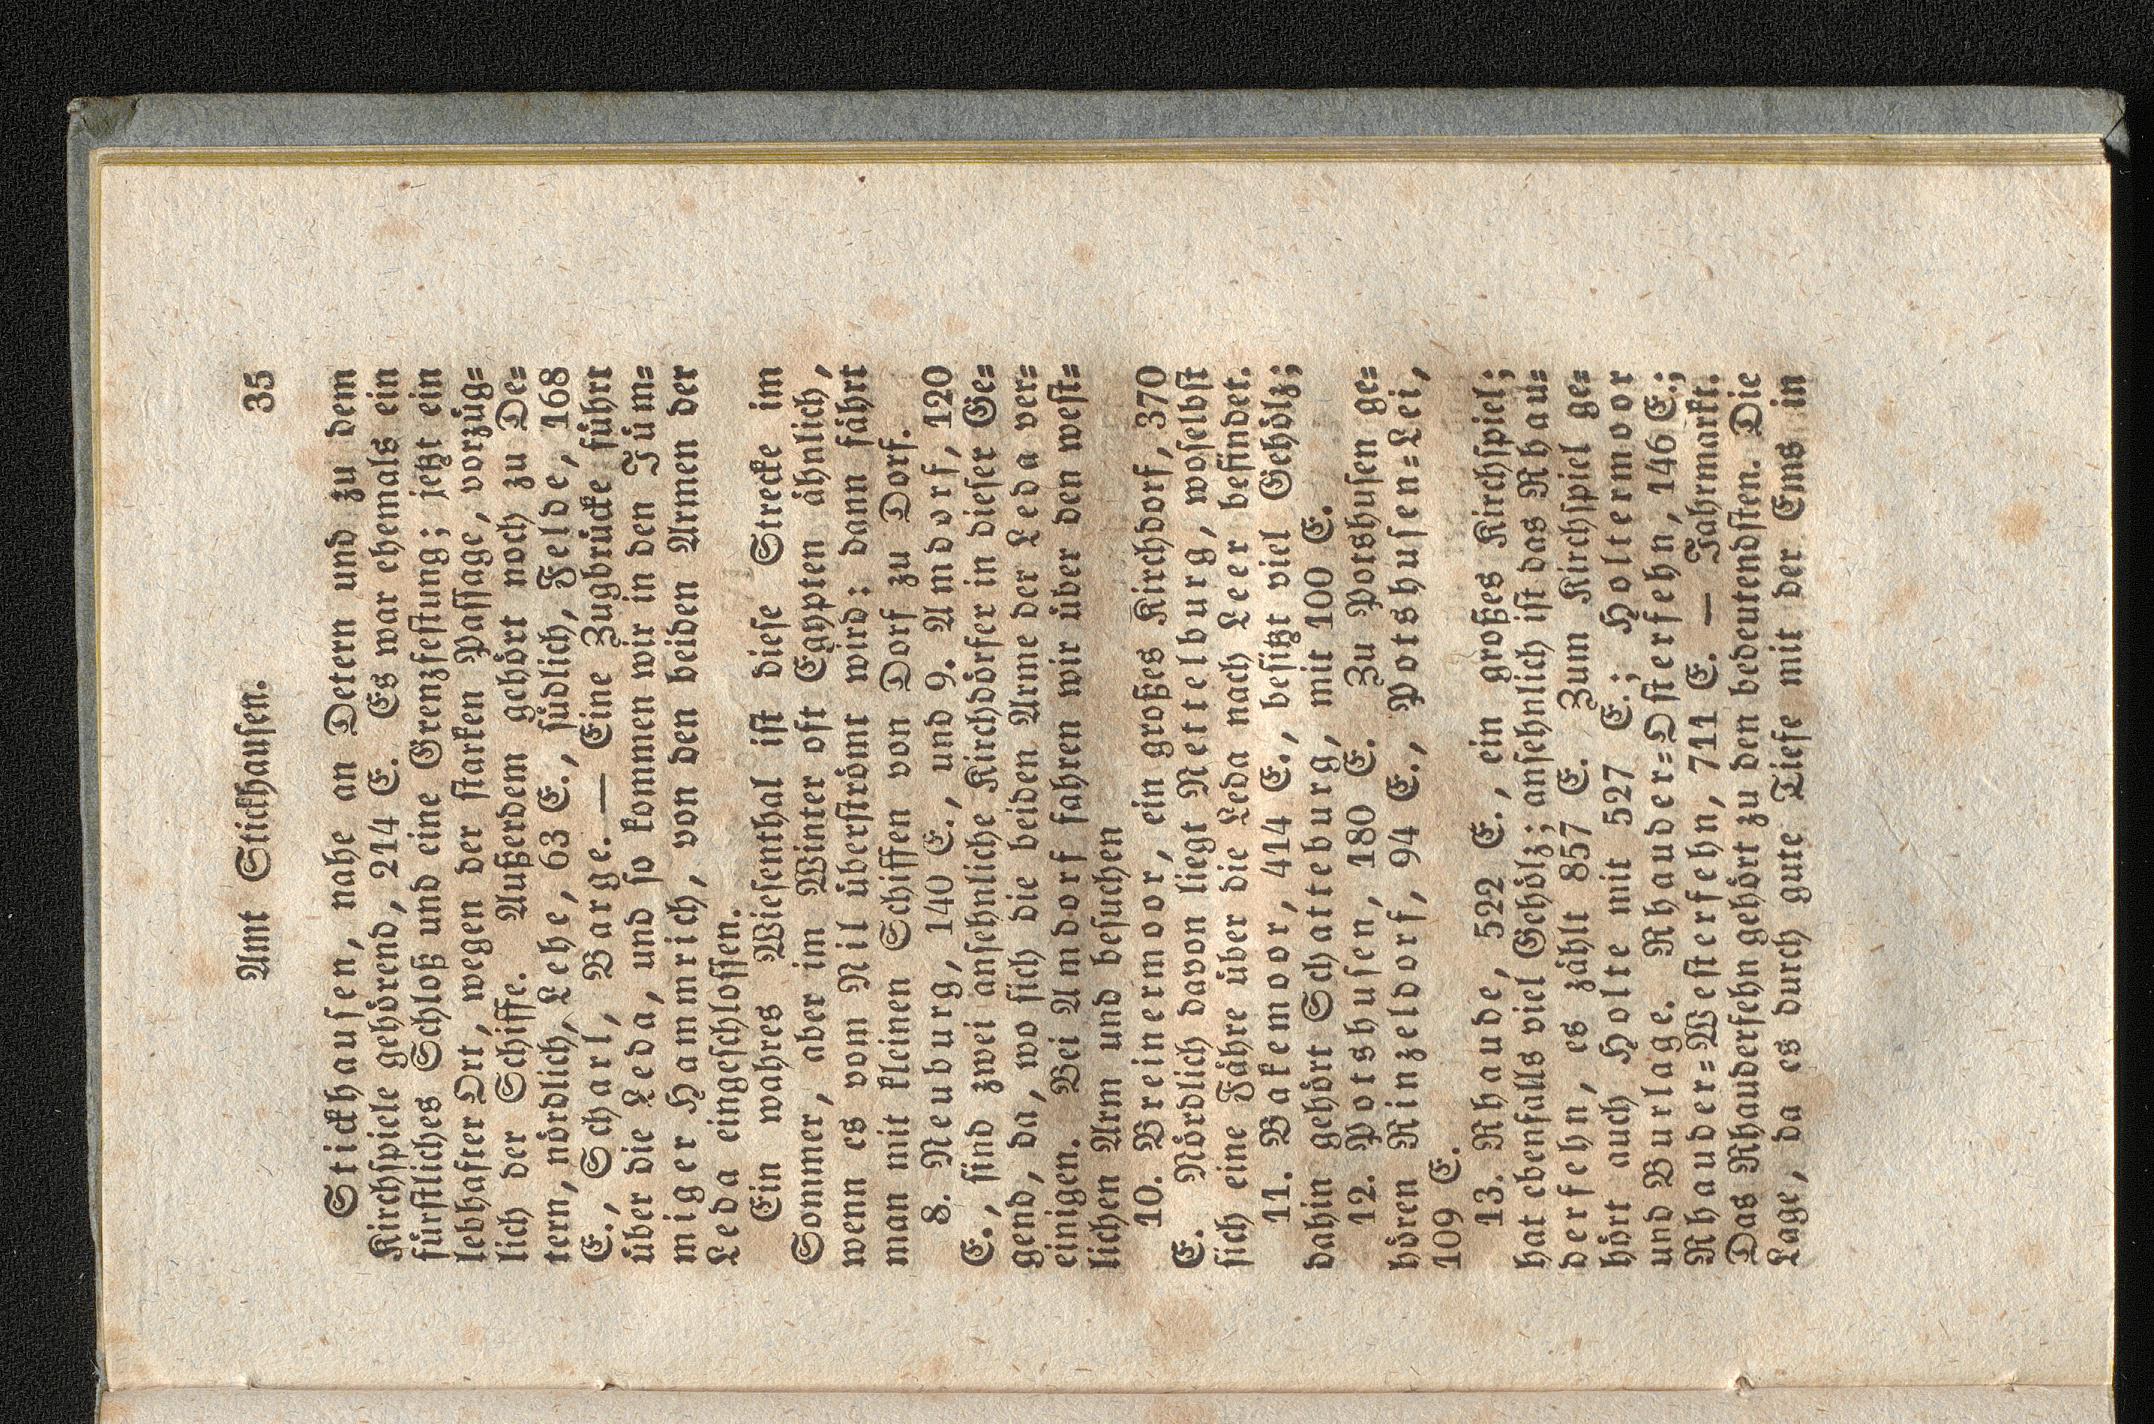 Amt Stickhausen. 35
Stickhausen, nahe an Detern und zu dem
Kirchspiele gehörend, 214 E. Es war ehemals ein
fürstliches Schloß und eine Grenzfestung; jetzt ein
lebhafter Ort, wegen der starken Passage, vorzüg=
lich der Schiffe. Außerdem gehört noch zu De=
tern, nördlich, Lehe, 63 E., südlich, Felde, 168
E., Scharl, Barge. — Eine Zugbrücke führt
über die Leda, und so kommen wir in den Jüm=
miger Hammrich, von den beiden Armen der
Leda eingeschlossen.
Ein wahres Wiesenthal ist diese Strecke im
Sommer, aber im Winter oft Egypten ähnlich,
wenn es vom Nil überströmt wird: dann fährt
man mit kleinen Schiffen von Dorf zu Dorf.
8. Neuburg, 140 E., und 9. Amdorf, 120
E., sind zwei ansehnliche Kirchdörfer in dieser Ge=
gend, da, wo sich die beiden Arme der Leda ver=
einigen. Bei Amdorf fahren wir über den west=
lichen Arm und besuchen
10. Breinermoor, ein großes Kirchdorf, 370
E. Nördlich davon liegt Nettelburg, woselbst
sich eine Fähre über die Leda nach Leer befindet.
11. Bakemoor, 414 E., besitzt viel Gehölz;
dahin gehört Schatteburg, mit 100 E.
12. Potshusen, 180 E. Zu Potshusen ge=
hören Rinzeldorf, 94 E., Potshusen=Lei,
109 E.
13. Rhaude, 522 E., ein großes Kirchspiel;
hat ebenfalls viel Gehölz; ansehnlich ist das Rhau=
derfehn, es zählt 857 E. Zum Kirchspiel ge=
hört auch Holte mit 527 E.; Holtermoor
und Burlage. Rhauder=Osterfehn, 146 E.;
Rhauder=Westerfehn, 711 E. — Jahrmarkt.
Das Rhauderfehn gehört zu den bedeutendsten. Die
Lage, da es durch gute Tiefe mit der Ems in